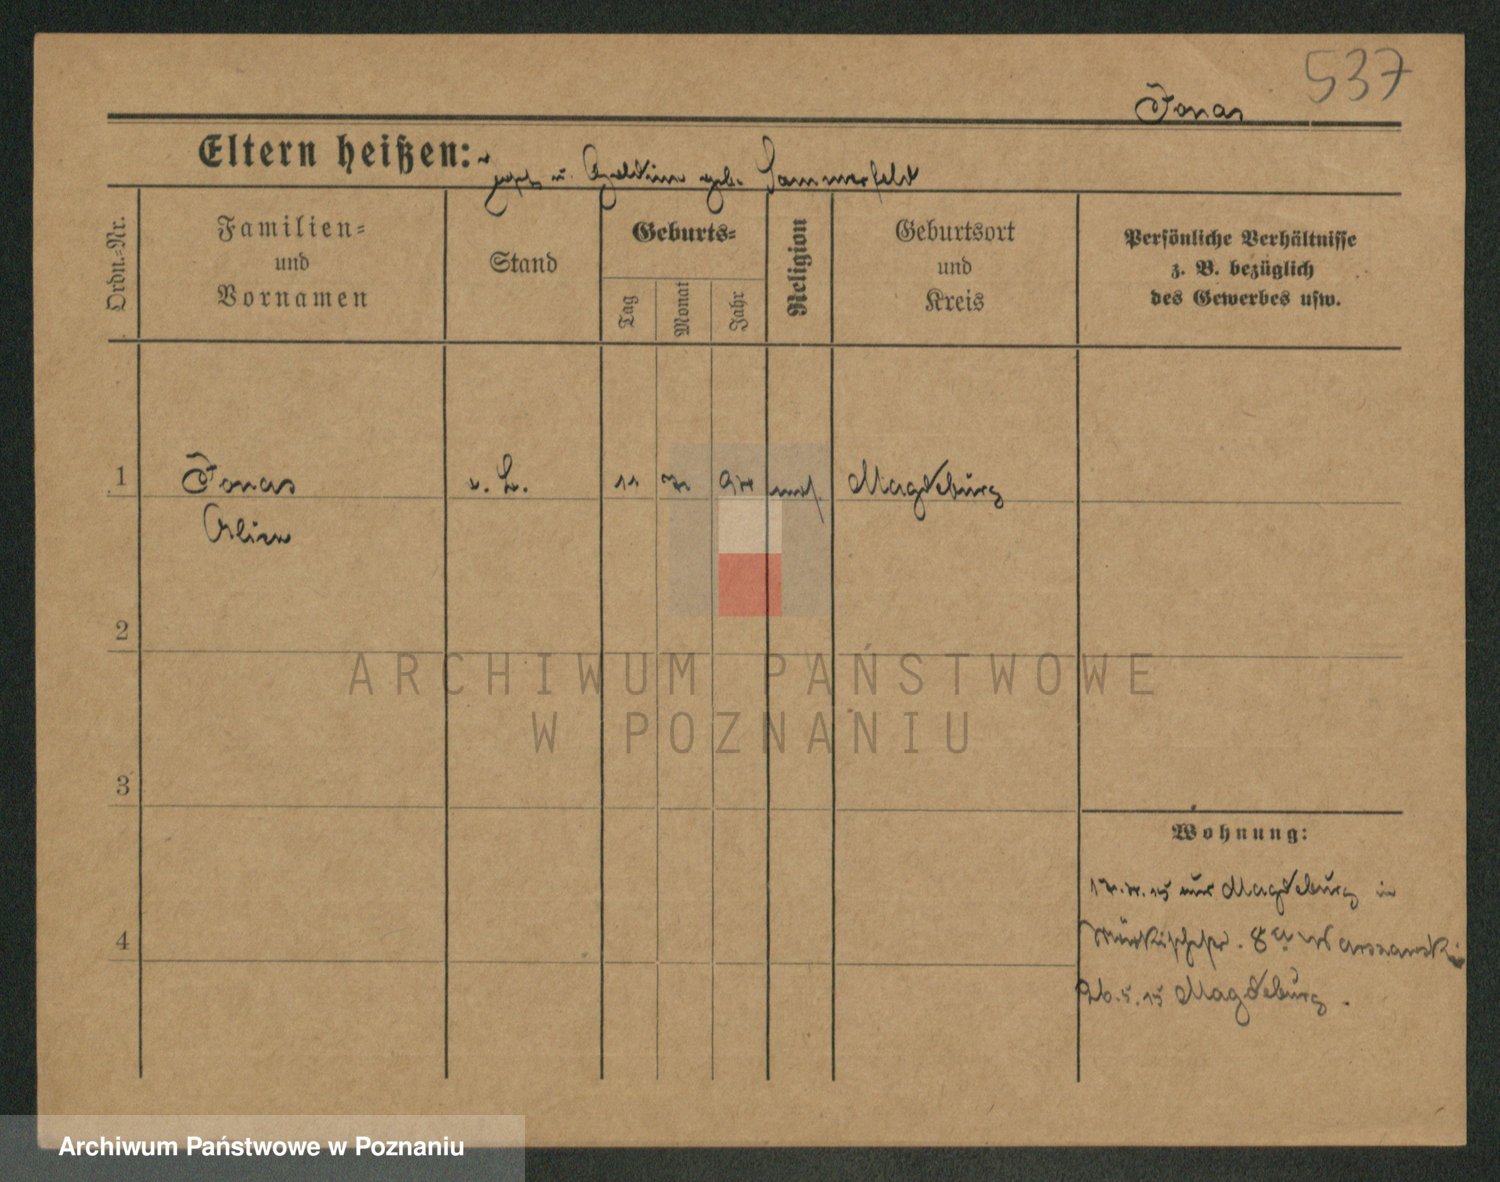 537
Jonas
Eltern heißen: u. geb. Sommerfeld
Ordn.-Nr.
Familien-
und
Vornamen
Stand
Geburts-
Tag
Monat
Jahr
Religion
Geburtsort
und
Kreis
Persönliche Verhältnisse
z. B. bezüglich
des Gewerbes usw.
1
Jonas
11
Magdeburg
2
ARCHIWUM PAŃSTWOWE
W POZNANIU
3
Wohnung:
15 aus Magdeburg in
4
Warszawski
26.5.15 Magdeburg.
Archiwum Państwowe w Poznaniu